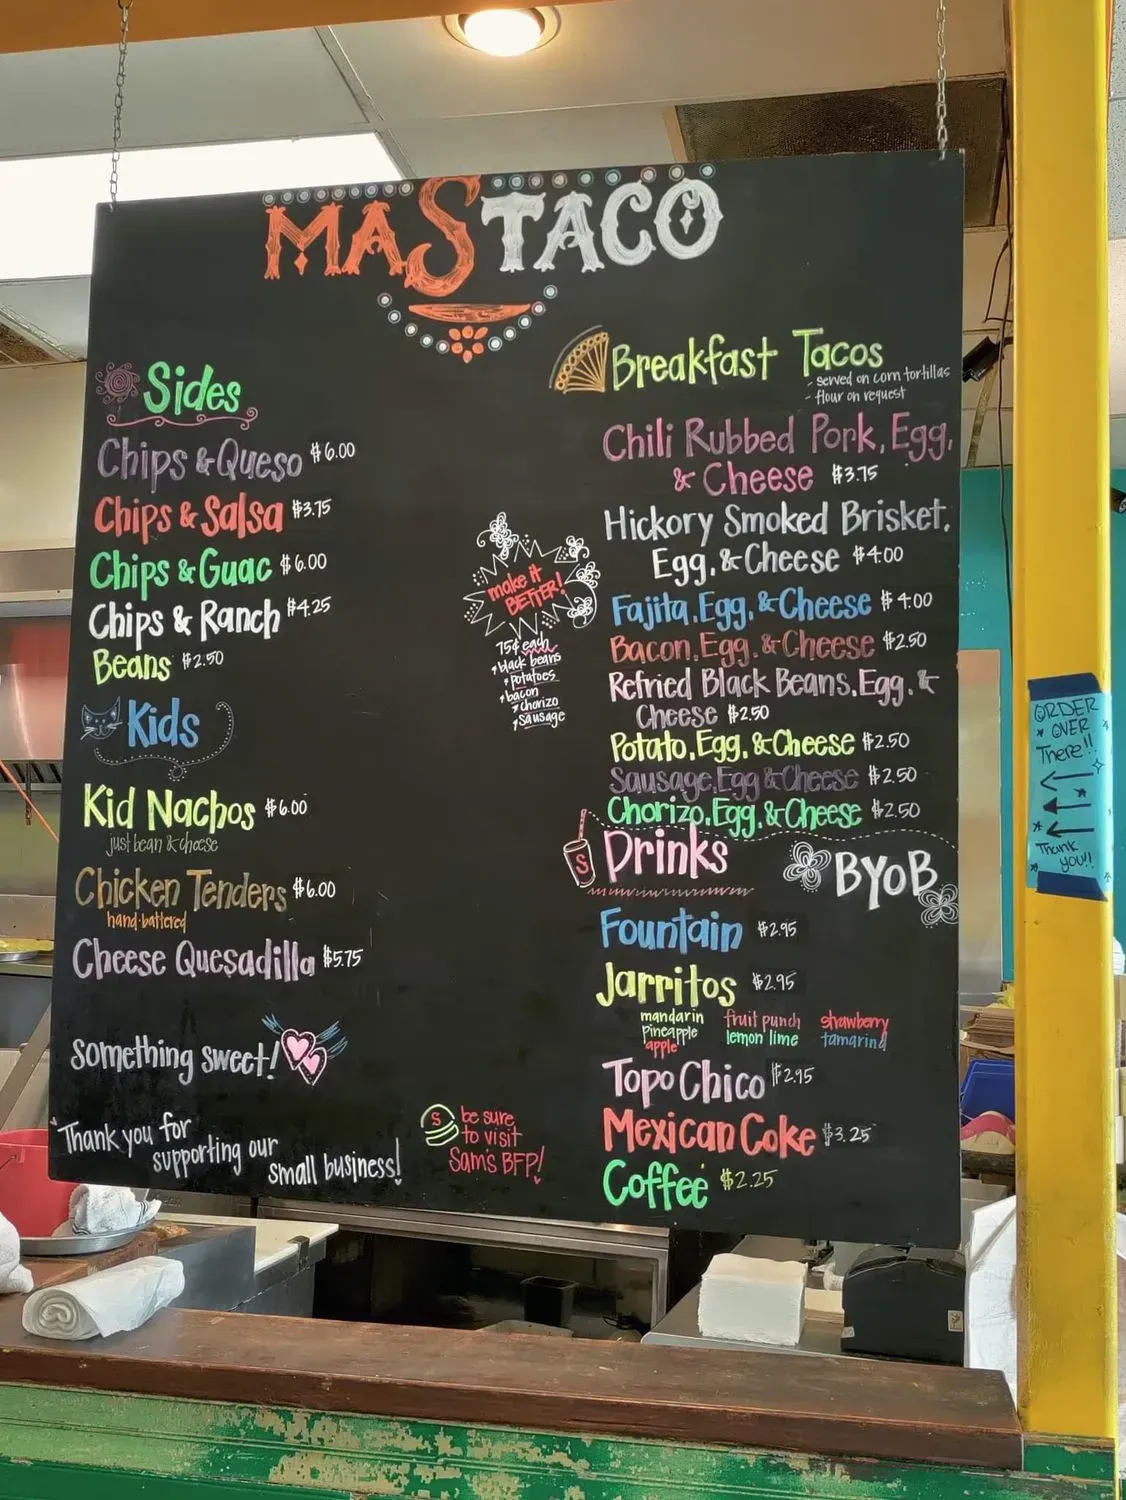 MASTACO
Sides
Chips & Queso $6.00
Chips & Salsa $3.75
Chips & Guac $6.00
Chips & Ranch $4.25
Beans $2.50
Kids
Kid Nachos $6.00
just bean & cheese
Chicken Tenders $6.00
hand-battered
Cheese Quesadilla $5.75
something sweet!
Thank you for
supporting our
small business!
make it
BETTER!
75¢ each
black beans
potatoes
bacon
chorizo
sausage
S
be sure
to visit
Sam's BFP!
Breakfast Tacos
- served on corn tortillas
- flour on request
Chili Rubbed Pork, Egg,
& Cheese $3.75
Hickory Smoked Brisket,
Egg, & Cheese $4.00
Fajita, Egg, & Cheese $4.00
Bacon, Egg, & Cheese $2.50
Refried Black Beans, Egg, &
Cheese $2.50
Potato, Egg, & Cheese $2.50
Sausage, Egg & Cheese $2.50
Chorizo, Egg, & Cheese $2.50
S
Drinks
BYOB
Fountain $2.95
Jarritos $2.95
mandarin fruit punch strawberry
pineapple lemon lime tamarind
apple
Topo Chico $2.95
Mexican Coke $3.25
Coffee $2.25
ORDER
OVER
There!!
Thank
you!!